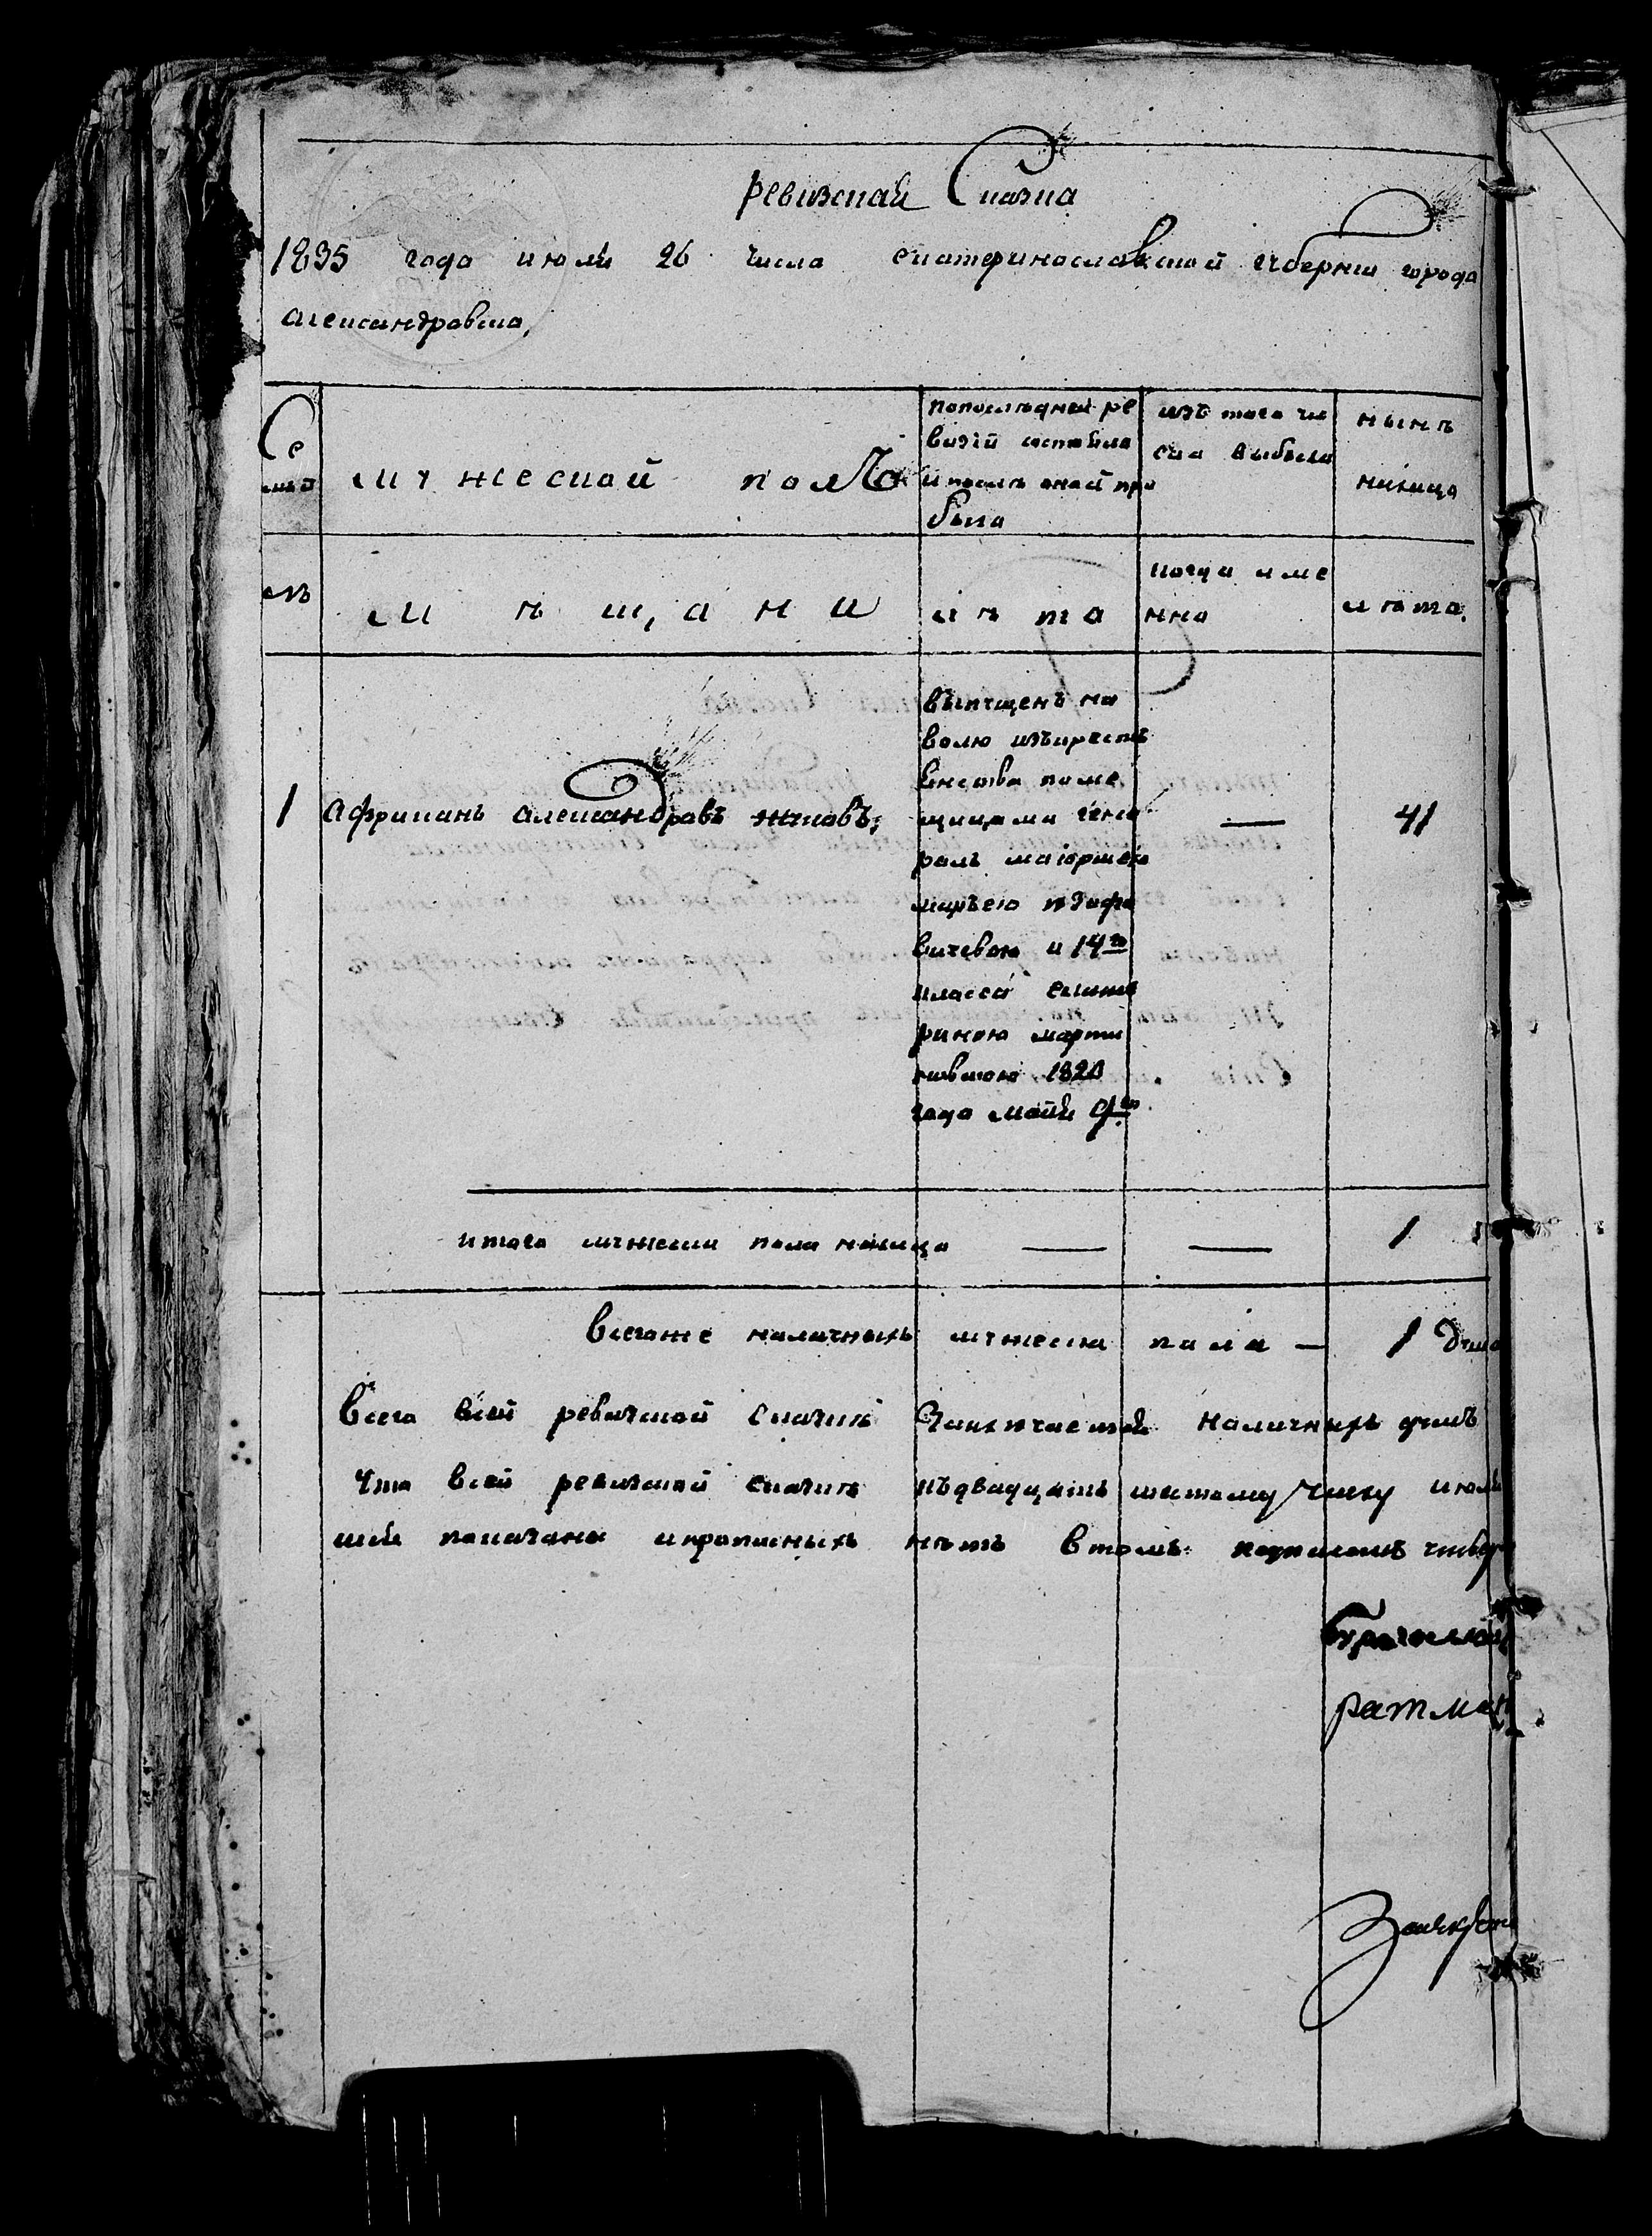 ревизская Сказка
1835 года июля 26 числа екатеринославской губернии города
александравска,
Се
мьи
мужеской полъ
попоследней ре
визiи состояло
и после оной при
было
изъ того чи
сла выбыло
нынѣ
налицо
№
мѣщане
лѣта
когда име
нно
лѣта.
1
Африканъ александравъ жуковъ;
выпущенъ на
волю изъкрепо
снства поме
щицами гене
ралъ маiоршею
марьею
вичевою и 14го
класса екате
риною марти
1820
года маия 9го
—
41
итого мужеска пола налицо — — 1
всегоже наличныхъ мужеска пола — 1 душа
всего всей ревизской сказкѣ Заключается наличныхъ душъ
что всей ревизской сказкѣ къдвадцать шестому числу июля
показаны ипрописныхъ нѣтъ втомъ подписомъ
ратман